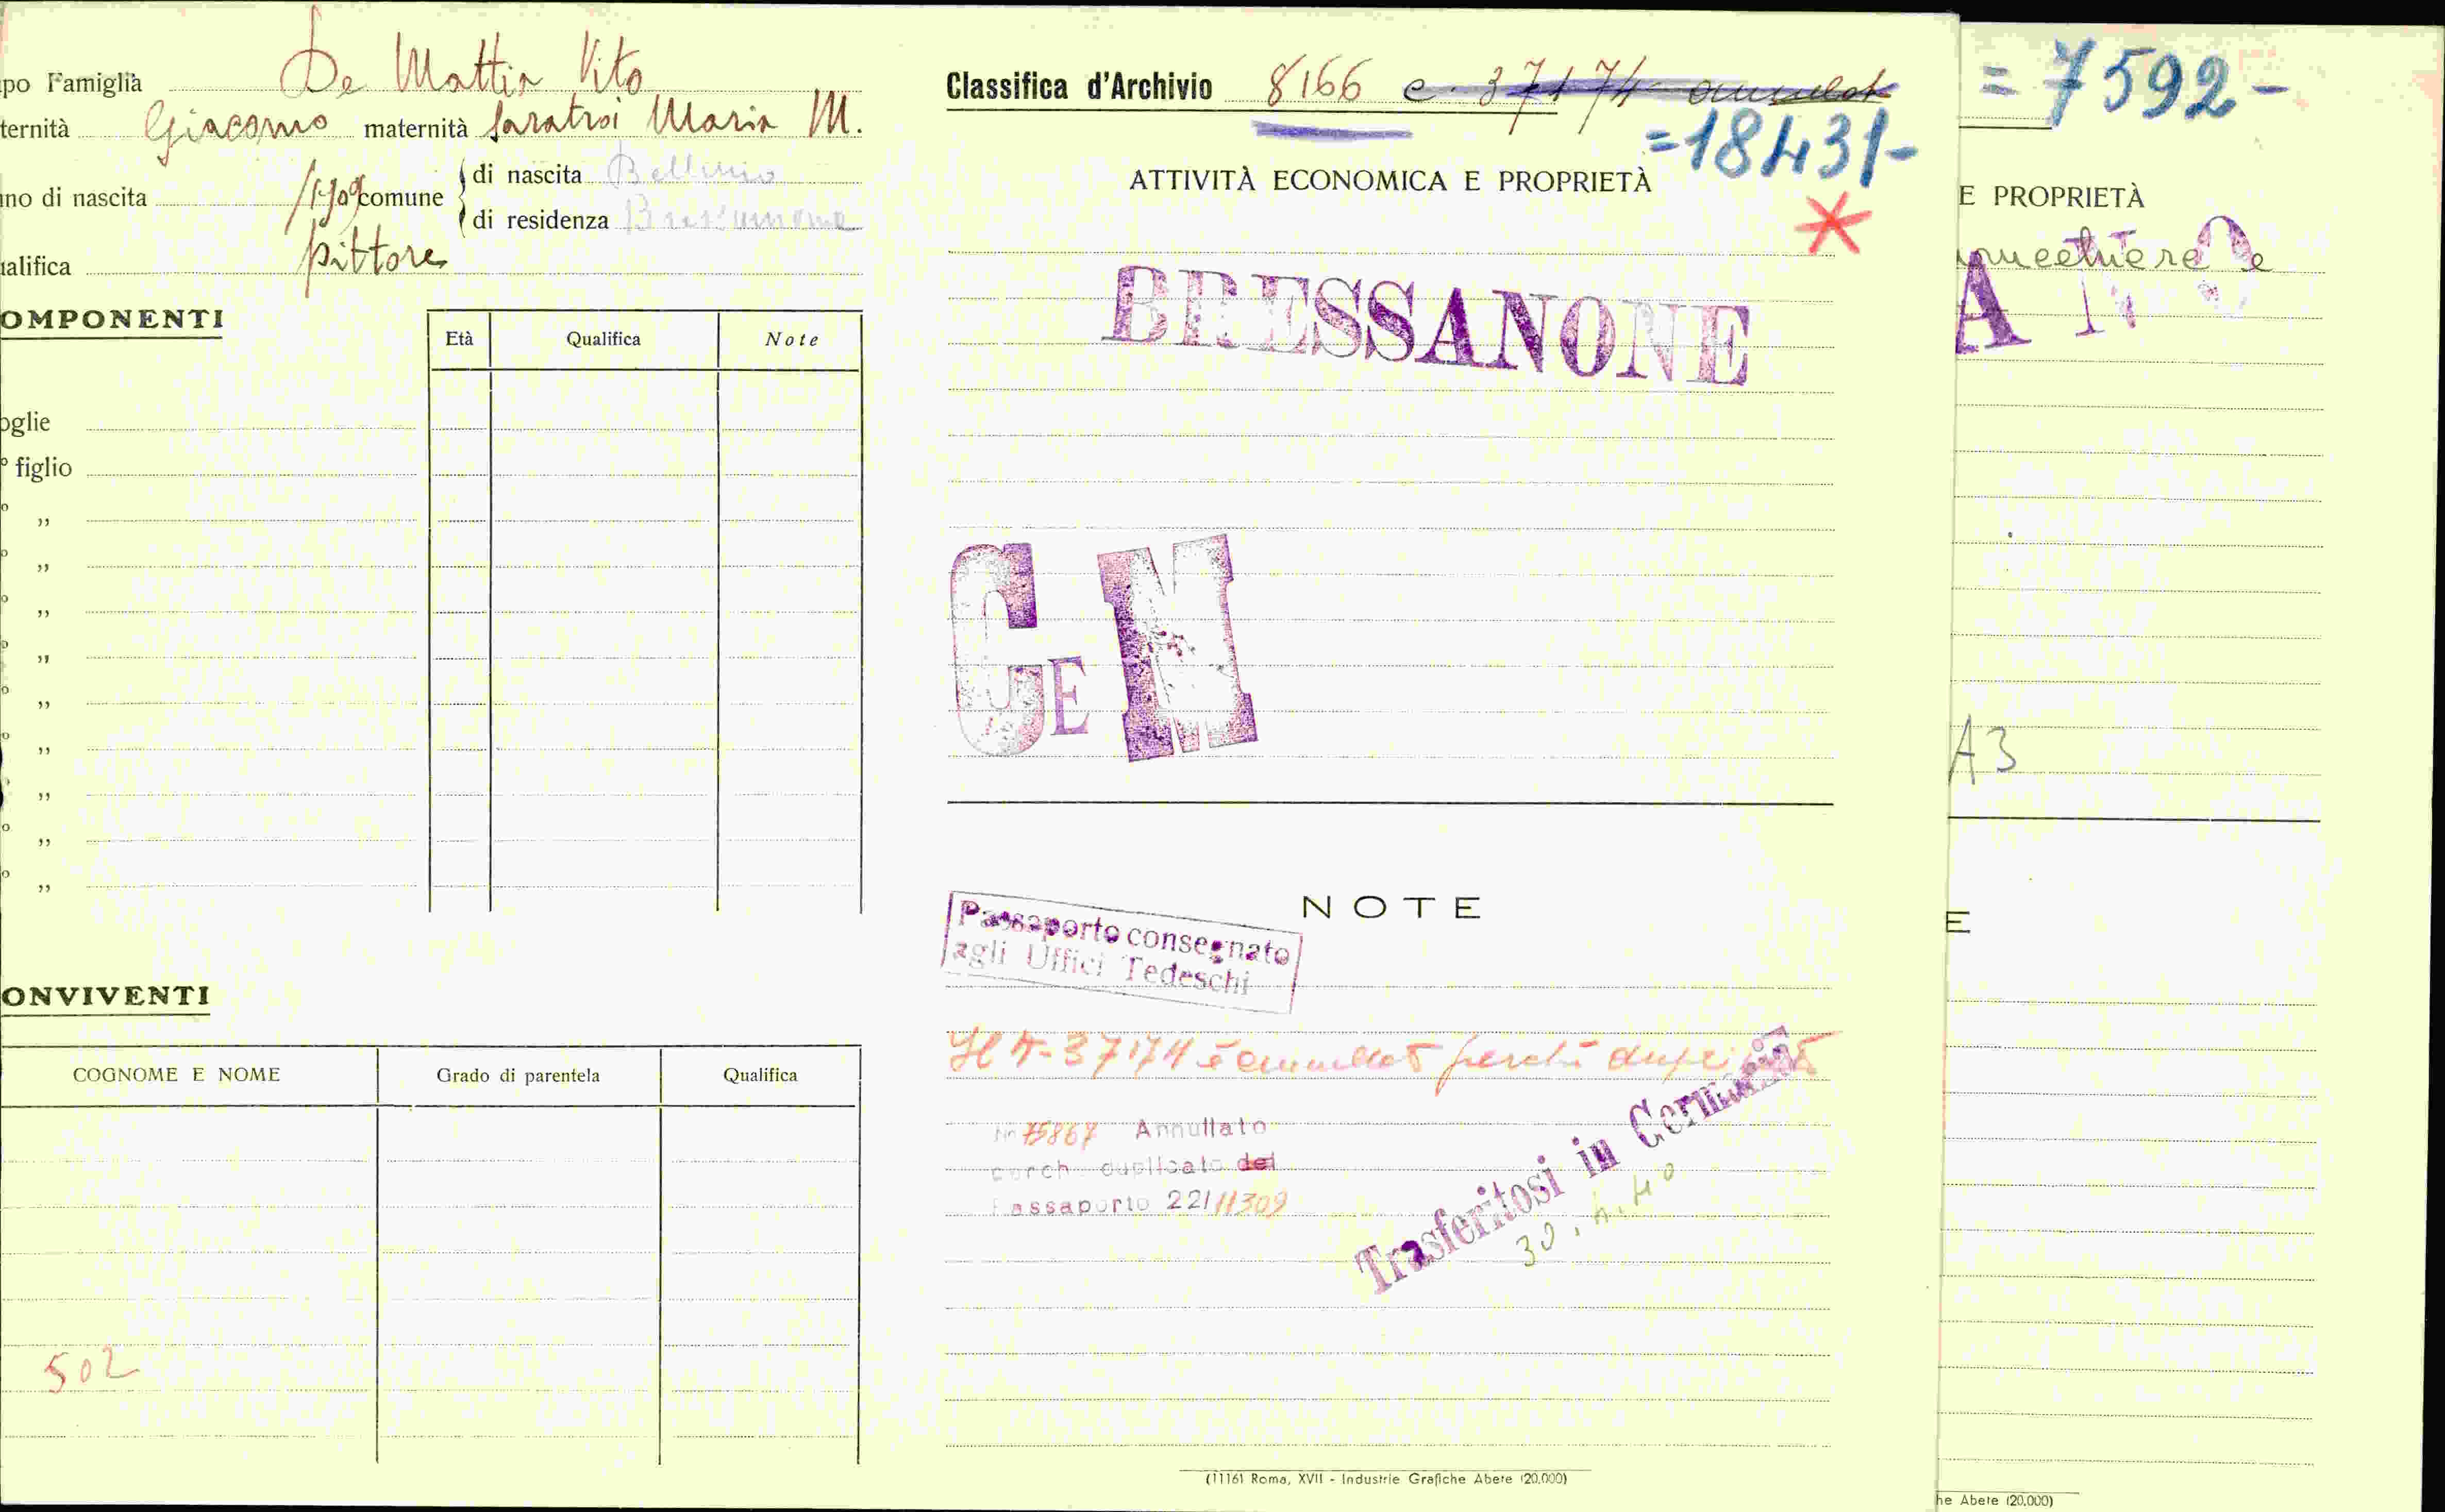 po Famiglia De Mattia Vito
ternità Giacomo maternità Maria M.
no di nascita 1909 comune di nascita Belluno
di residenza Bressanone
alifica pittore
OMPONENTI
Età Qualifica Note
oglie
° figlio
° ,,
° ,,
° ,,
° ,,
° ,,
° ,,
,,
° ,,
° ,,
ONVIVENTI
COGNOME E NOME Grado di parentela Qualifica
502
Classifica d'Archivio 8166 e 37174 annullato
=18431-
ATTIVITÀ ECONOMICA E PROPRIETÀ
BRESSANONE
G E M
NOTE
Passaporto consegnato
agli Uffici Tedeschi
Il N- 37174 è annullato perchè duplicato
Nr 75867 Annullato
perch duplicato del
Passaporto 22/11309
Trasferitosi in Germania
30.4.40
(11161 Roma, XVII - Industrie Grafiche Abete (20.000)
= 7592-
E PROPRIETÀ
A N O
A3
E
he Abete (20.000)